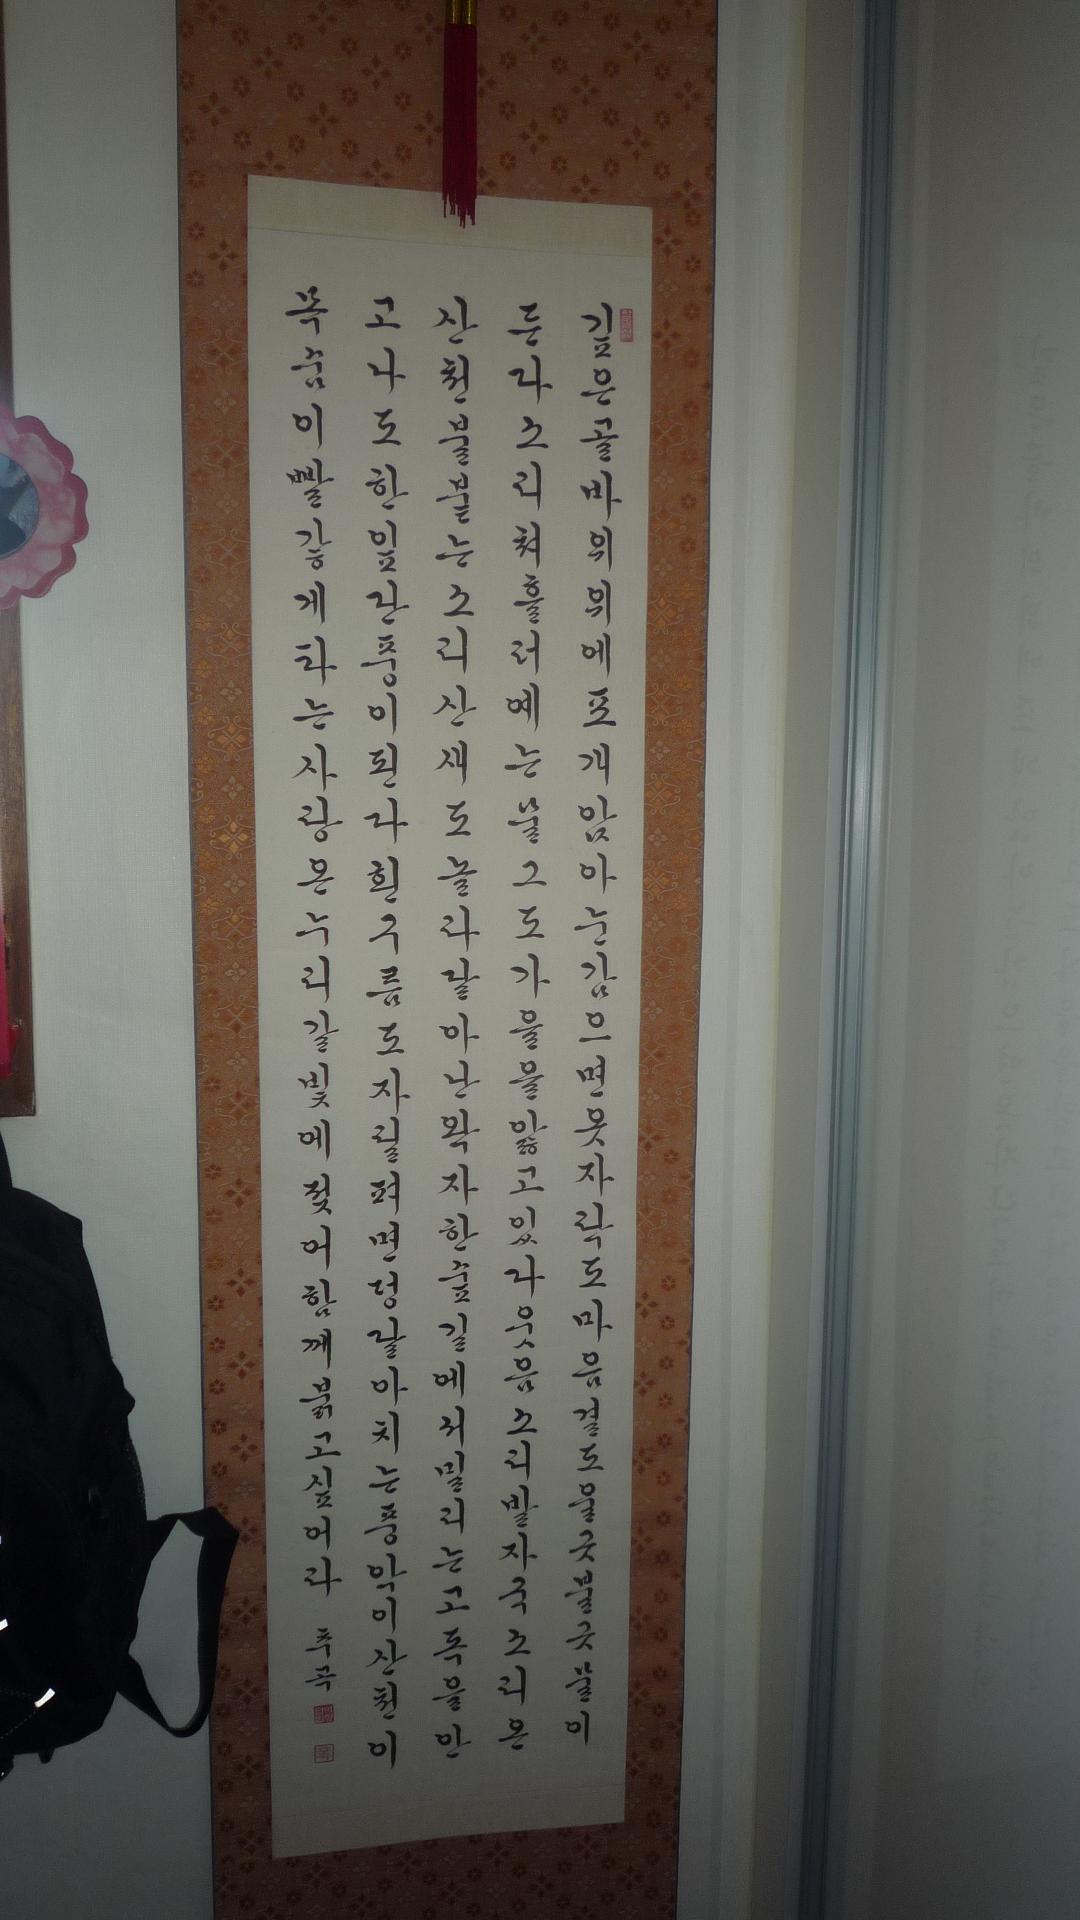 깊은골바위위에포개앉아눈감으면옷자락도마음결도울긋불긋물이
든다소리쳐흘러예는물그도가을을앓고있다웃음소리발자국소리온
산천불붙는소리산새도놀라달아난왁자한숲길에서밀리는고독을안
고나도한잎단풍이된다흰구름도자릴펴면덩달아치는풍악이산천이
목숨이빨갛게타는사랑온누리갈빛에젖어함께붉고싶어라 추곡